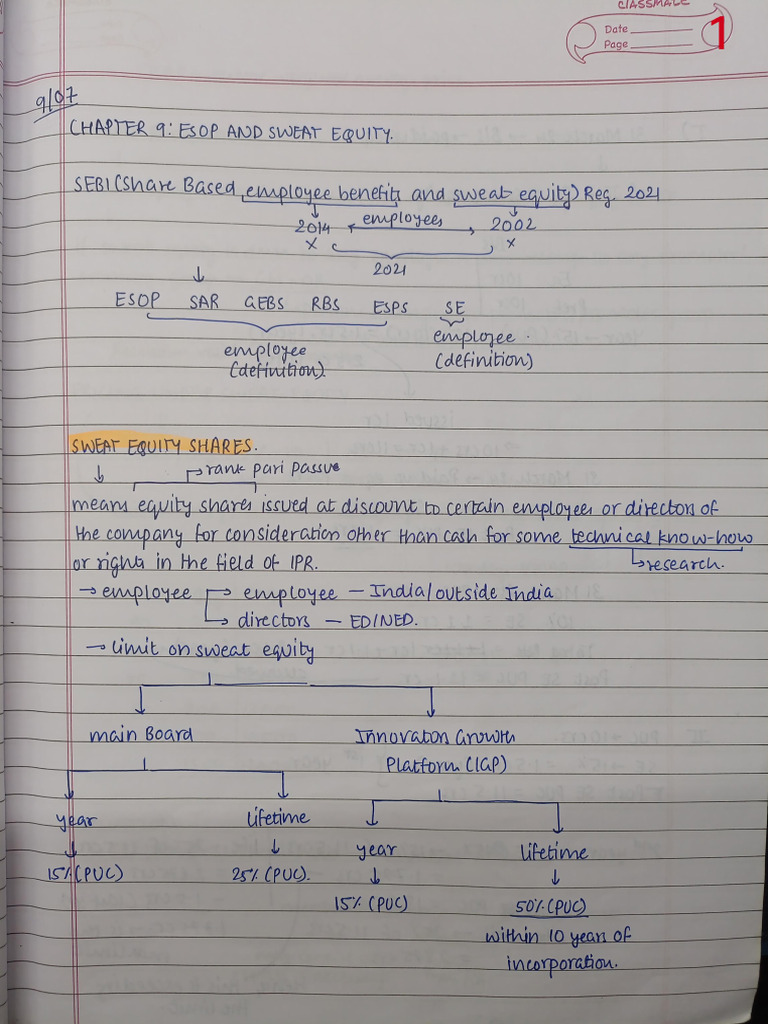 classmate
Date
Page
1
9/07
CHAPTER 9: ESOP AND SWEAT EQUITY.
SEBI (Share Based employee benefits and sweat equity) Reg. 2021
2014 employees 2002
X X
2021
ESOP SAR GEBS RBS ESPS SE
employee (definition).
employee. (definition)
SWEAT EQUITY SHARES.
→ rank pari passue
means equity shares issued at discount to certain employees or directors of
the company for consideration other than cash for some technical know-how
or rights in the field of IPR.
→ research.
→ employee → employee – India/outside India
→ directors – ED/NED.
→ limit on sweat equity
main Board
Innovators Growth
Platform (IGP)
year lifetime
year lifetime
15% (PUC) 25% (PUC).
15% (PUC) 50% (PUC)
within 10 years of
incorporation.